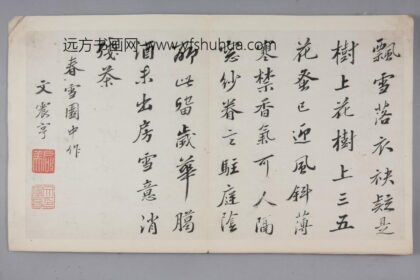 远方书画网-www.yfshuhua.com
飄雪落衣袂疑是
樹上花樹上三五
花蚤已迎風斜薄
寒禁香氣可人隔
窓紗眷言駐庭陰
聊此留歲華臈
酒未出房雪意消
殘茶
春雪園中作
文震亨